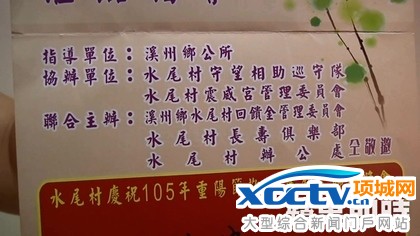 指導單位：溪州鄉公所
協辦單位：水尾村守望相助巡守隊
水尾村震威宮管理委員會
聯合主辦：溪州鄉水尾村回饋金管理委員會
水尾村長壽俱樂部
水尾村辦公處 仝敬邀
水尾村慶祝105年重陽節
xcctv.cn 项城网
大型综合新闻门户网站